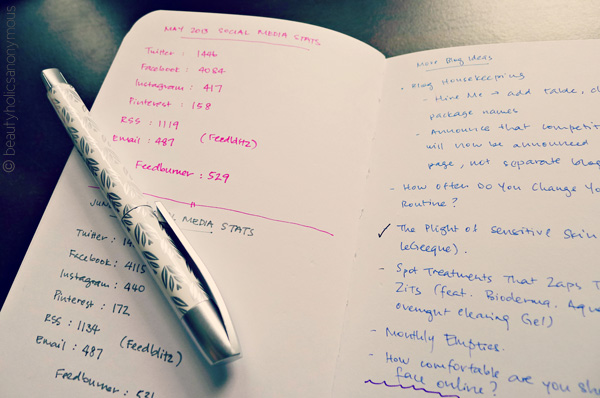 © beautyholicsanonymous
MAY 2013 SOCIAL MEDIA STATS
Twitter : 1446
Facebook : 4084
Instagram : 417
Pinterest : 158
RSS : 1119
Email : 487 (Feedblitz)
Feedburner : 529
MEDIA STATS
Twitter :
Facebook : 4115
Instagram : 440
Pinterest : 172
RSS : 1134
Email : 487 (Feedblitz)
Feedburner :
More Blog Ideas
- Blog Housekeeping
- Hire Me → add
package names
- Announce that
will now be announced
page, not separate
- How Often Do You Change
Routine?
✓ The Plight of Sensitive Skin
- Spot Treatments That Zaps
Zits (feat. Bioderma,
overnight clearing Gel)
- Monthly Empties.
- How comfortable are you
face online?